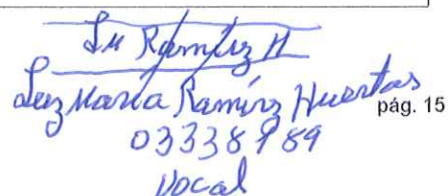 Lu Ramírez H
Luz María Ramírez Huertas
pág. 15
03338989
Vocal